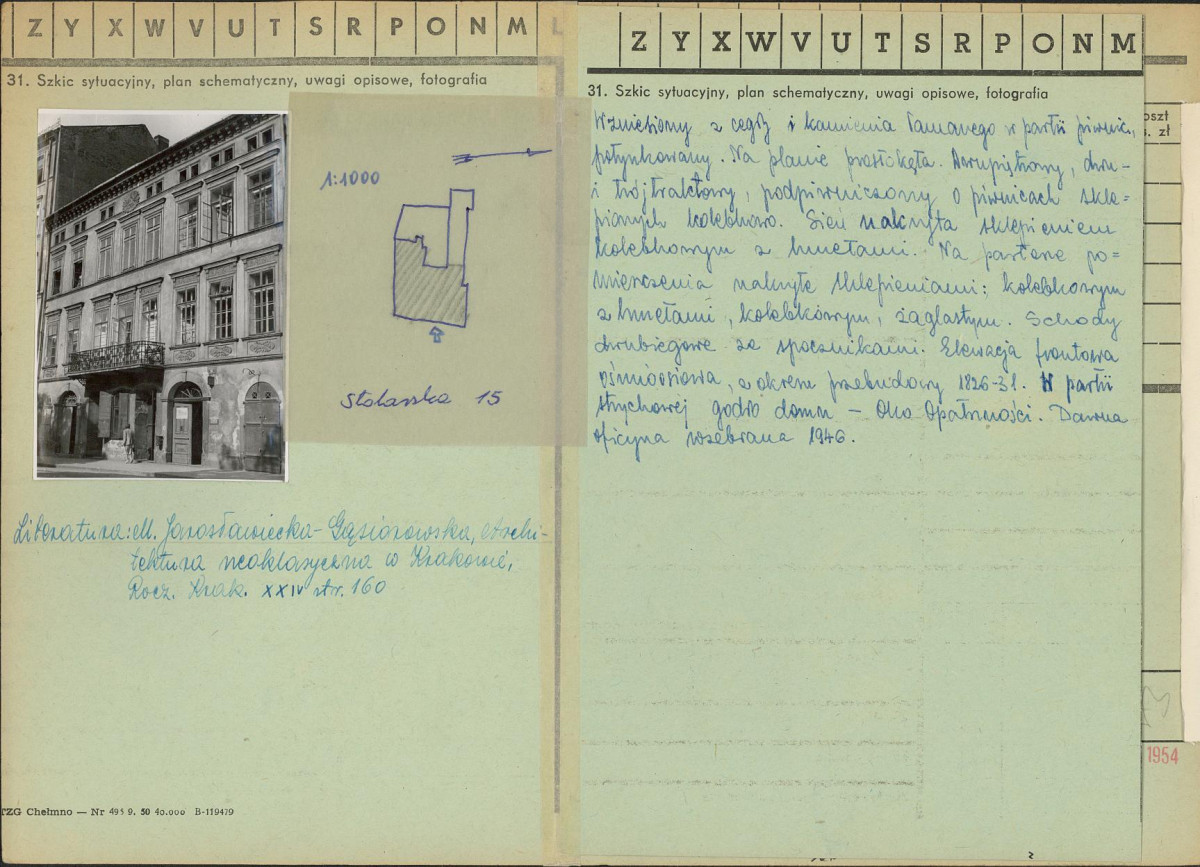 Z Y X W V U T S R P O N M L
31. Szkic sytuacyjny, plan schematyczny, uwagi opisowe, fotografia
1:1000
Stolarska 15
Literatura: M. Jarosławiecka-Gąsiorowska, Archi-
tektura neoklasyczna w Krakowie,
Rocz. Krak. XXIV str. 160
TZG Chełmno — Nr 495 9. 50 40.000 B-119479
Z Y X W V U T S R P O N M
31. Szkic sytuacyjny, plan schematyczny, uwagi opisowe, fotografia
Wzniesiony z cegły i kamienia łamanego w partii piwnic,
potynkowany. Na planie prostokąta. Dwupiętrowy, dwu-
i trójtraktowy, podpiwniczony o piwnicach skle=
pionych kolebkowo. Sień nakryta sklepieniem
kolebkowym z lunetami. Na parterze po=
mieszczenia nakryte sklepieniami: kolebkowym
z lunetami, kolebkowym, żaglastym. Schody
dwubiegowe ze spocznikami. Elewacja frontowa
ośmioosiowa, z okresu przebudowy 1826-31. W partii
strychowej godło domu — Oko Opatrzności. Dawna
oficyna rozebrana 1946.
oszt
s. zł
1954